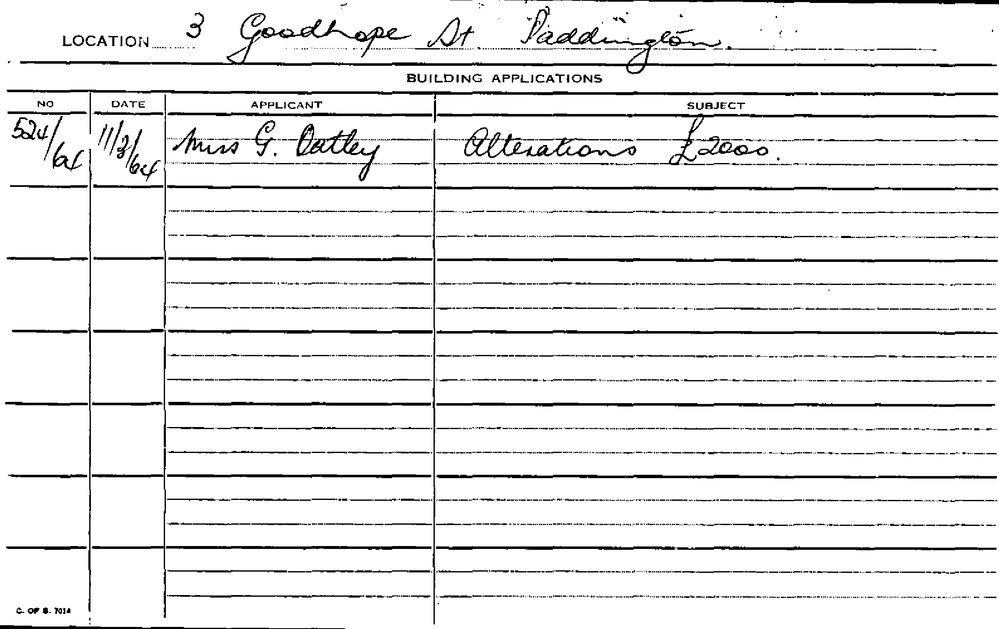 LOCATION 3 Goodhope St. Paddington.
BUILDING APPLICATIONS
NO DATE APPLICANT SUBJECT
524/64 11/3/64 Miss G. Oatley Alterations £2000.
C. OF S. 7014